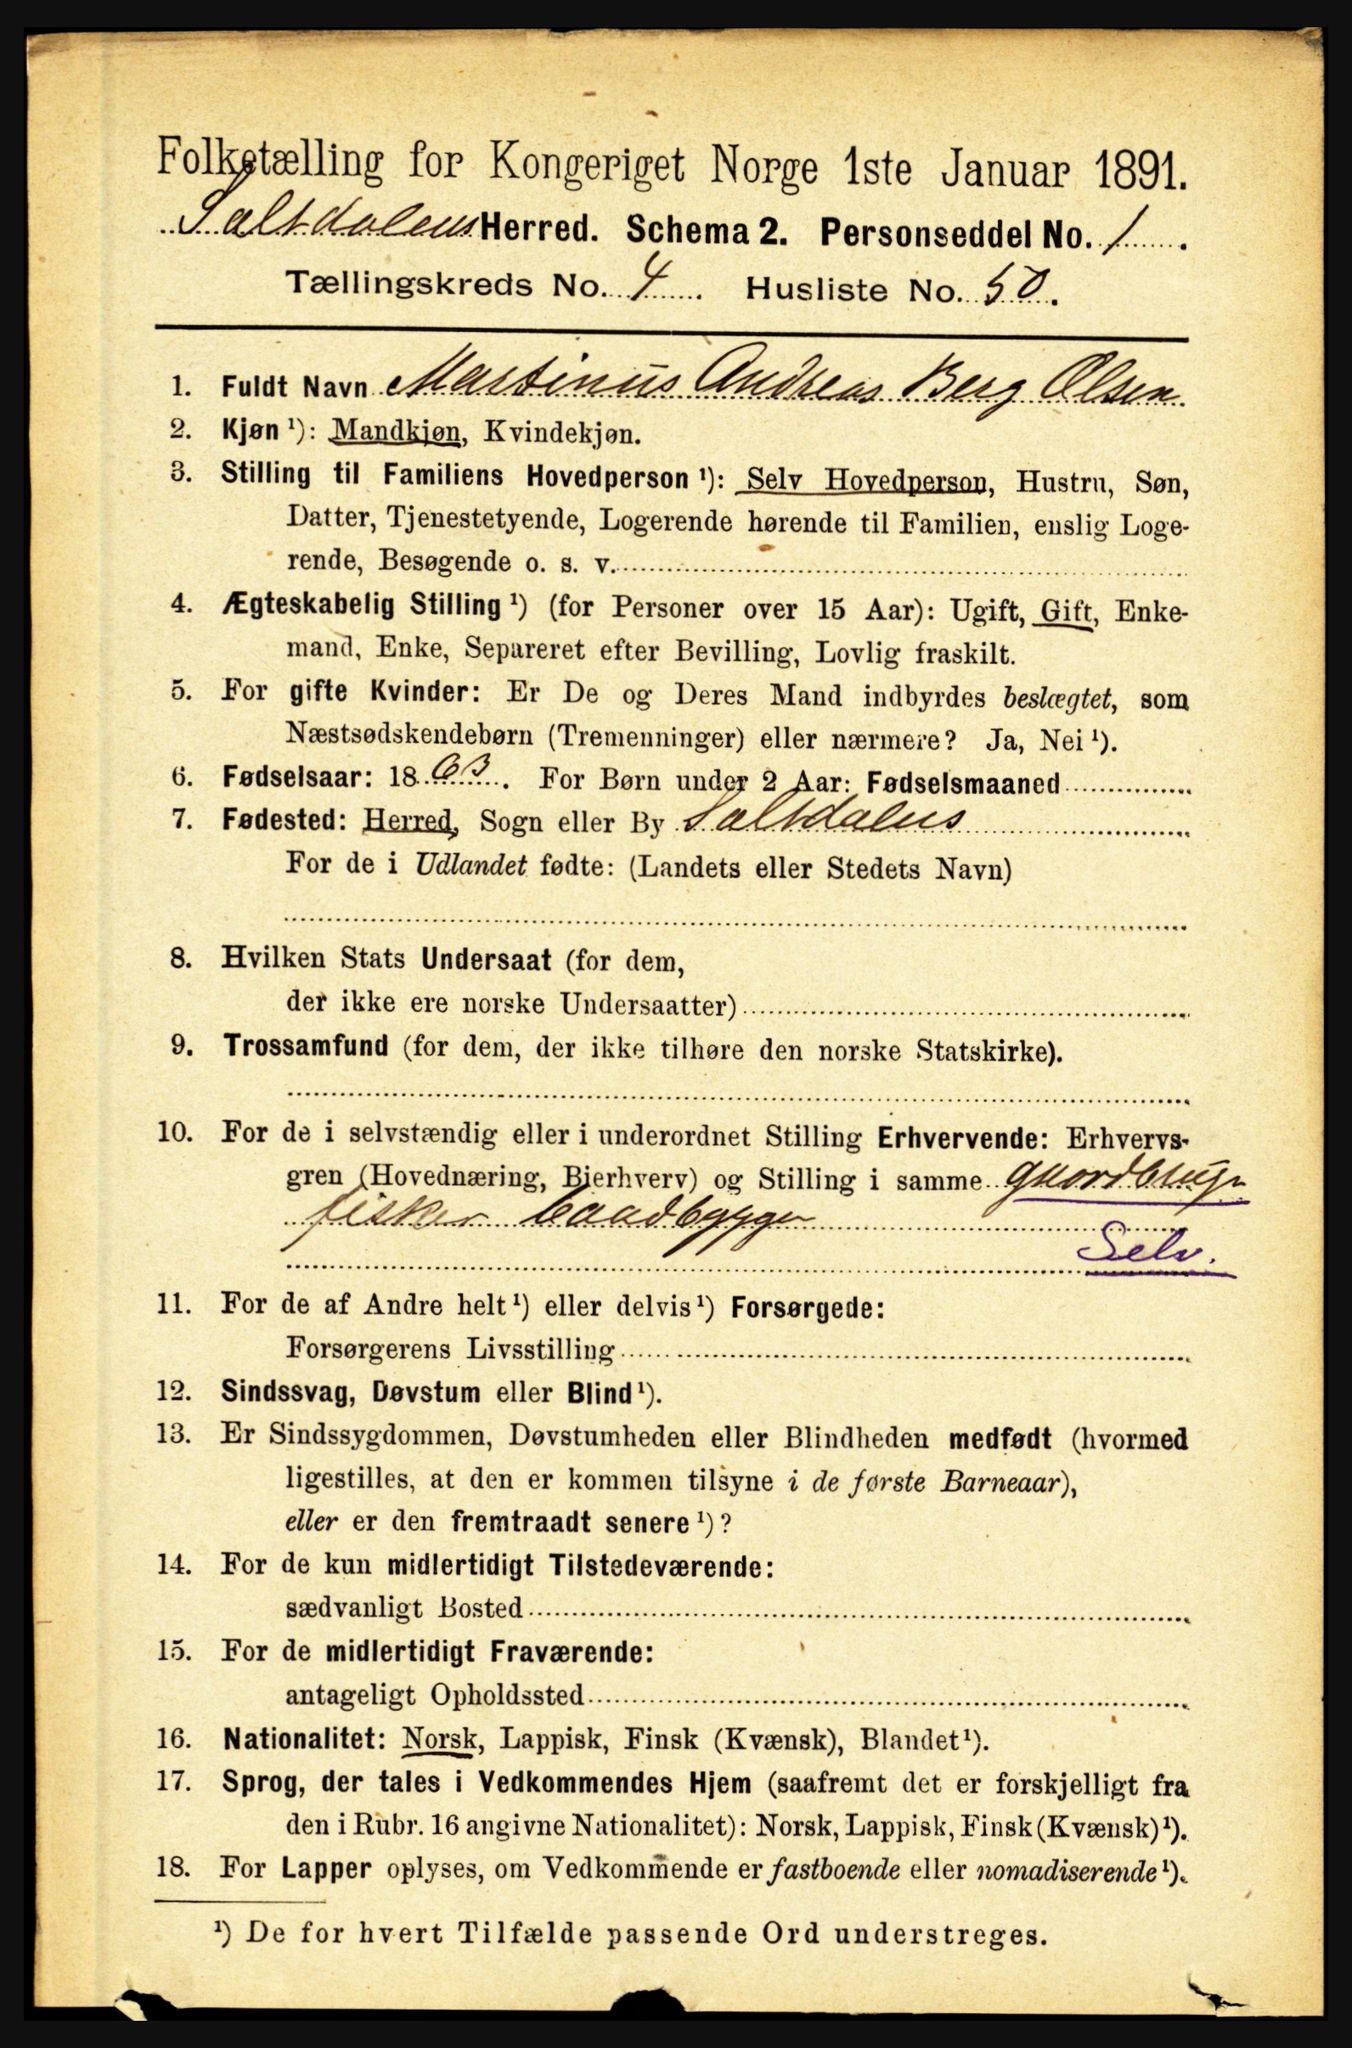 Folketælling for Kongeriget Norge 1ste Januar 1891.
Saltdalens Herred. Schema 2. Personseddel No. 1.
Tællingskreds No. 4. Husliste No. 50.
1. Fuldt Navn Martinus Andreas Berg Olsen
2. Kjøn ¹): Mandkjøn, Kvindekjøn.
3. Stilling til Familiens Hovedperson ¹): Selv Hovedperson, Hustru, Søn,
Datter, Tjenestetyende, Logerende hørende til Familien, enslig Loge-
rende, Besøgende o. s. v.
4. Ægteskabelig Stilling ¹) (for Personer over 15 Aar): Ugift, Gift, Enke-
mand, Enke, Separeret efter Bevilling, Lovlig fraskilt.
5. For gifte Kvinder: Er De og Deres Mand indbyrdes beslægtet, som
Næstsødskendebørn (Tremenninger) eller nærmere? Ja, Nei ¹).
6. Fødselsaar: 1863. For Børn under 2 Aar: Fødselsmaaned
7. Fødested: Herred, Sogn eller By Saltdalens
For de i Udlandet fødte: (Landets eller Stedets Navn)
8. Hvilken Stats Undersaat (for dem,
der ikke ere norske Undersaatter)
9. Trossamfund (for dem, der ikke tilhøre den norske Statskirke).
10. For de i selvstændig eller i underordnet Stilling Erhvervende: Erhvervs-
gren (Hovednæring, Bierhverv) og Stilling i samme
fisker baadbygger
Selv.
11. For de af Andre helt ¹) eller delvis ¹) Forsørgede:
Forsørgerens Livsstilling
12. Sindssvag, Døvstum eller Blind ¹).
13. Er Sindssygdommen, Døvstumheden eller Blindheden medfødt (hvormed
ligestilles, at den er kommen tilsyne i de første Barneaar),
eller er den fremtraadt senere ¹)?
14. For de kun midlertidigt Tilstedeværende:
sædvanligt Bosted
15. For de midlertidigt Fraværende:
antageligt Opholdssted
16. Nationalitet: Norsk, Lappisk, Finsk (Kvænsk), Blandet ¹).
17. Sprog, der tales i Vedkommendes Hjem (saafremt det er forskjelligt fra
den i Rubr. 16 angivne Nationalitet): Norsk, Lappisk, Finsk (Kvænsk) ¹).
18. For Lapper oplyses, om Vedkommende er fastboende eller nomadiserende ¹).
¹) De for hvert Tilfælde passende Ord understreges.